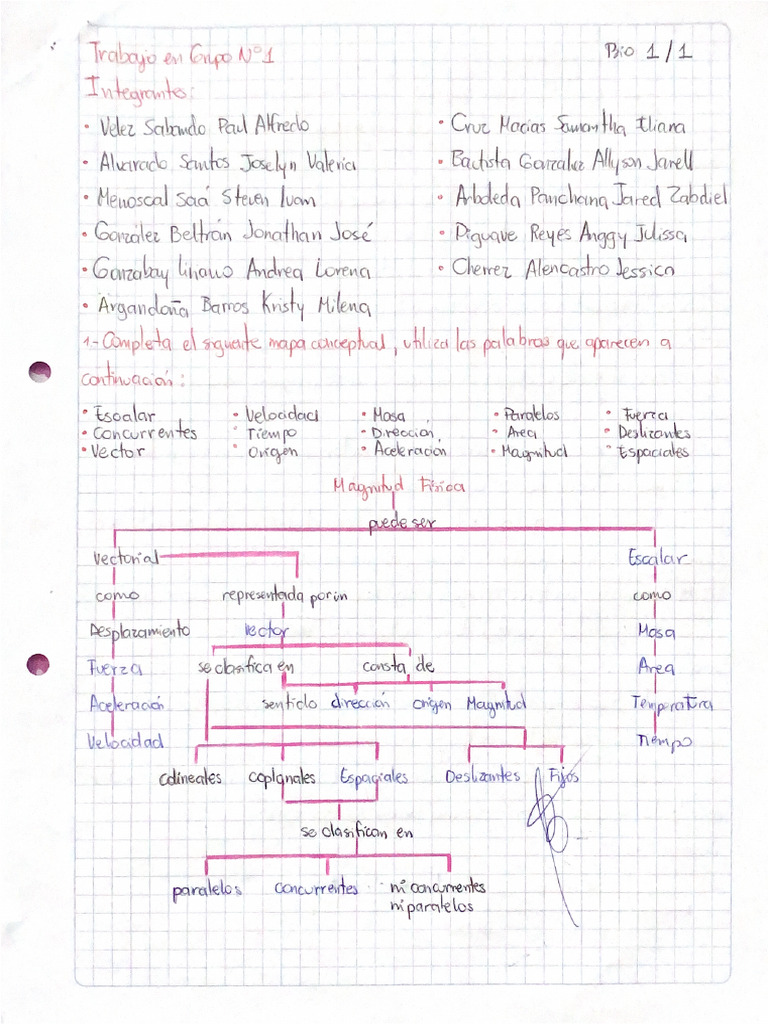 Trabajo en Grupo Nº1
Bio 1/1
Integrantes:
• Velez Sabando Paul Alfredo
• Alvarado Santos Joselyn Valeria
• Menoscal Saá Steven Ivan
• González Beltrán Jonathan José
• Gonzabay Liriano Andrea Lorena
• Argandoña Barros Kristy Milena
• Cruz Macias Samantha Iliana
• Bautista Gonzalez Allyson Janell
• Arboleda Panchana Jared Zabdiel
• Piguave Reyes Anggy Julissa
• Cherrez Alencastro Jessica
1.- Completa el siguiente mapa conceptual, utiliza las palabras que aparecen a
continuación:
• Escalar • Velocidad • Masa • Paralelos • Fuerza
• Concurrentes • Tiempo • Dirección • Area • Deslizantes
• Vector • Origen • Aceleración • Magnitud • Espaciales
Magnitud Física
puede ser
Vectorial Escalar
como representada por un como
Desplazamiento vector Masa
Fuerza se clasifica en consta de Area
Aceleración sentido dirección origen Magnitud Temperatura
Velocidad Tiempo
colineales coplanales Espaciales Deslizantes Fijos
se clasifican en
paralelos concurrentes ni concurrentes
ni paralelos